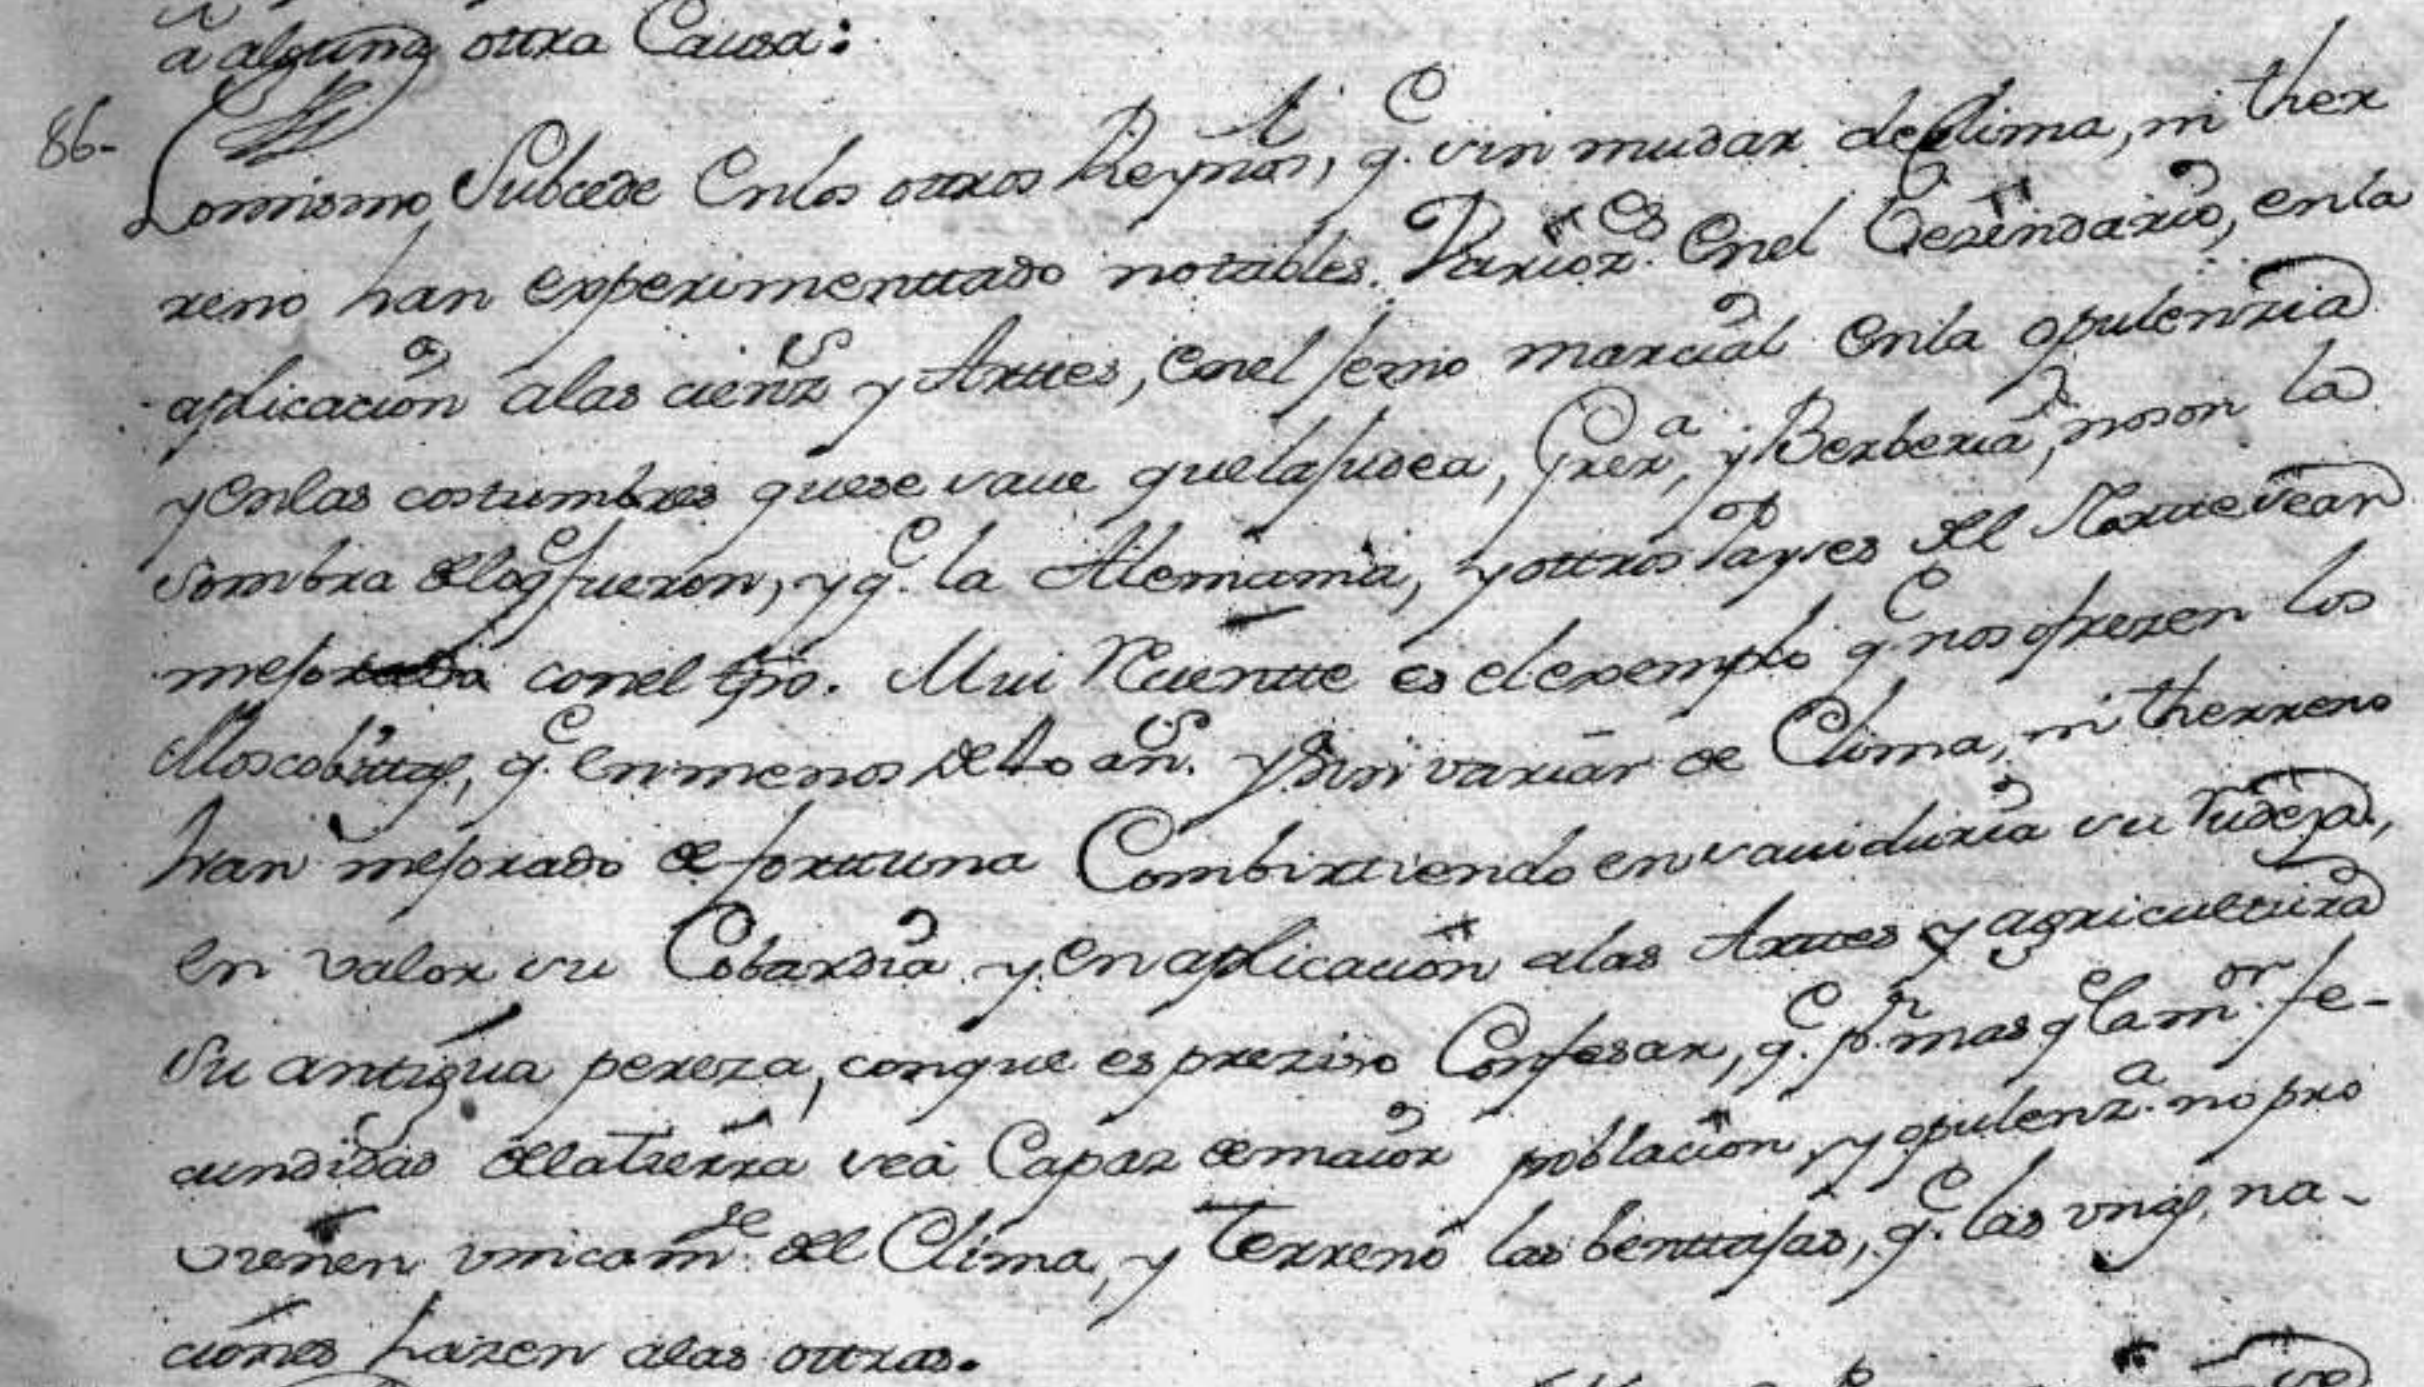 a alguna ottra Causa:
86-
Lomismo Subcede Enlos ottros Reynos, q.e sin mudar deClima, ni ther
reno han experimenttado notables. Varioz.es Enel Becindario, enla
aplicacion alas cienz.s y Arttes, enel jenio marcial Enla opulenzia
y Enlas costumbres quese save que lajudea, Grez.a, y Berberia, noson la
sombra dello q.e fueron, y q.e la Alemania, y ottros Payses del Nortte sean
mejorado conel tpo. Mui Reciente es el exemplo q.e nos ofrezen los
Moscobittas, q.e En menos de 40 añ.s y sin variar de Clima, ni therreno
han mejorado de forttuna Combirttiendo en saviduria su rudeza,
en valor su Cobardia y En aplicacion alas Arttes y agricultura
su antigua pereza, conque es preziso Confesar, q.e p.r mas q.e la m.or fe-
cundidad dela tierra sea Capaz de maior poblacion, y opulenz.a no pro
vienen unicam.te del Clima, y Terreno las benttajas, q.e las unas na-
ciones hazen alas ottras.